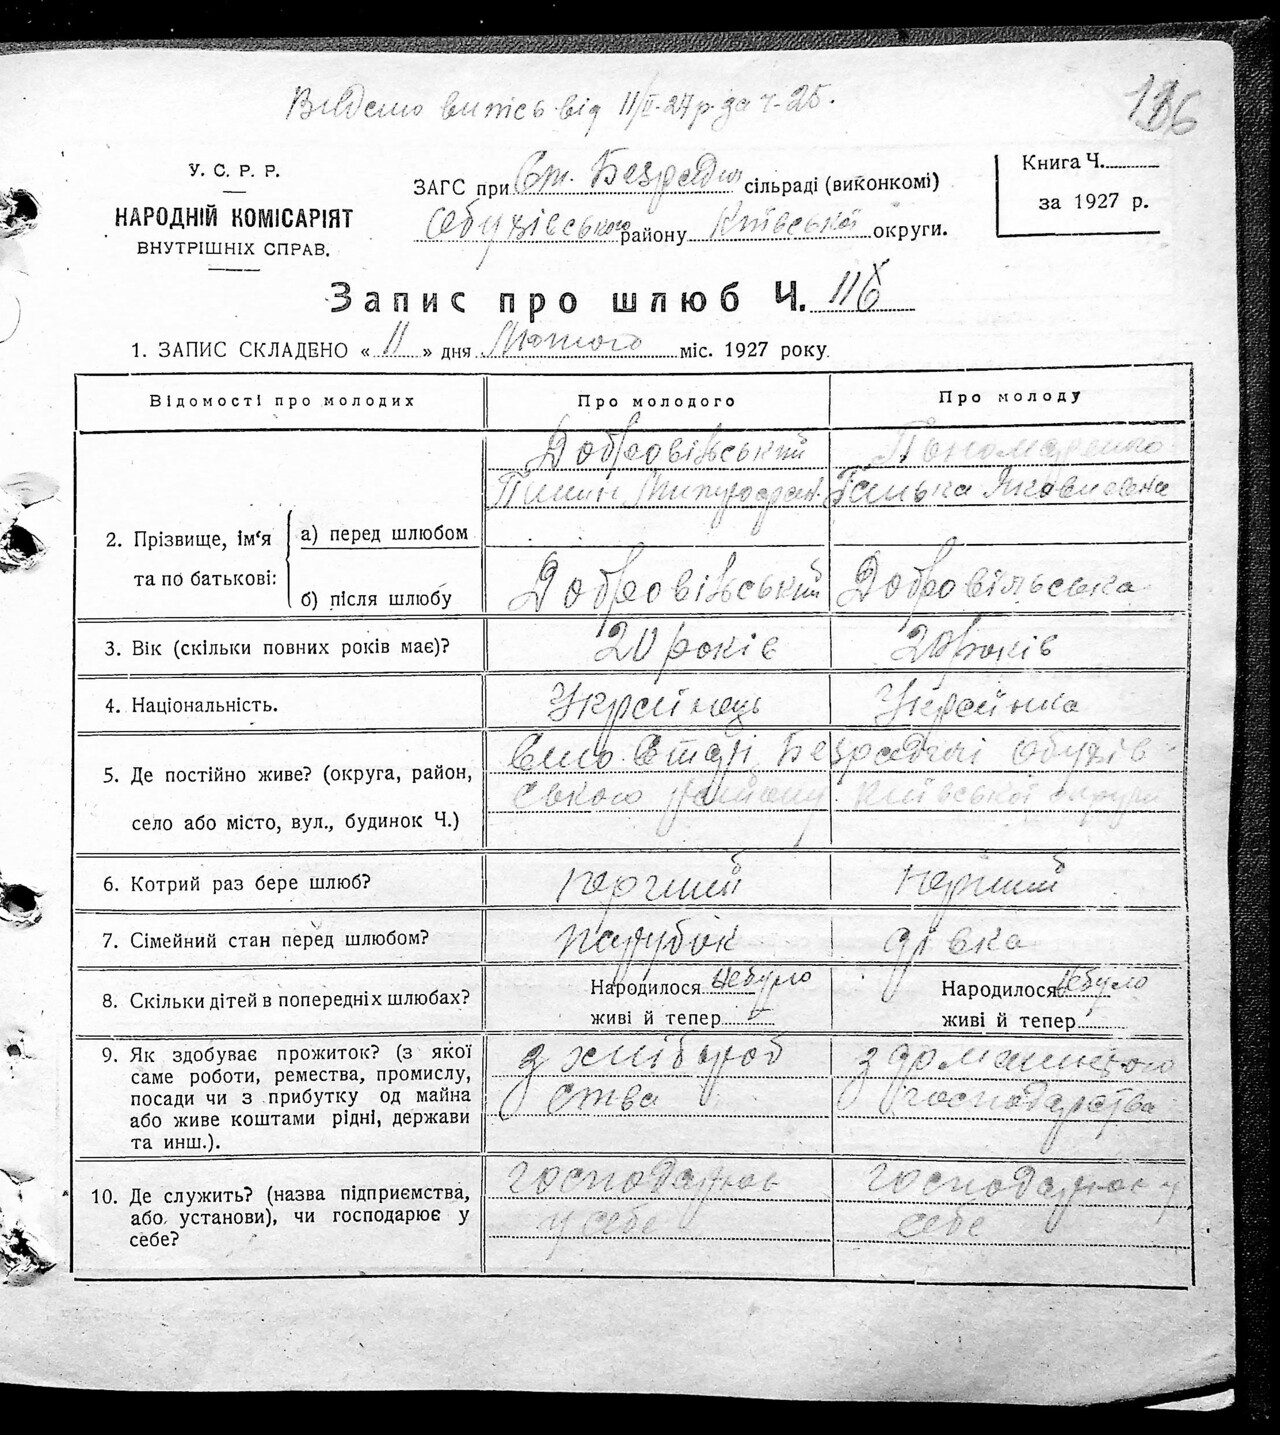 Видано випісь від 11/II-27 р. за ч. 25.
136
У. С. Р. Р.
НАРОДНІЙ КОМІСАРІЯТ
ВНУТРІШНІХ СПРАВ.
ЗАГС при Ст. Безрадичі сільраді (виконкомі)
Обухівського району Київської округи.
Книга Ч.
за 1927 р.
Запис про шлюб Ч. 11
1. ЗАПИС СКЛАДЕНО « 11 » дня Лютого міс. 1927 року.
Відомості про молодих Про молодого Про молоду
Добровільський Пономаренко
Галька Яковлевна
2. Прізвище, ім'я та по батькові:
а) перед шлюбом
б) після шлюбу Добровільський Добровільська
3. Вік (скільки повних років має)? 20 років 20 років
4. Національність. Українець Українка
5. Де постійно живе? (округа, район, село або місто, вул., будинок Ч.)
Село Старі Безрадичі Обухів-
ського району Київської округи
6. Котрий раз бере шлюб? перший перший
7. Сімейний стан перед шлюбом? парубок дівка
8. Скільки дітей в попередніх шлюбах? Народилося небуло Народилося небуло
живі й тепер живі й тепер
9. Як здобуває прожиток? (з якої з хлібороб з домашнього
саме роботи, ремества, промислу,
посади чи з прибутку од майна ства господарства
або живе коштами рідні, держави
та инш.).
10. Де служить? (назва підприємства, господарює господарює у
або установи), чи господарює у у себе себе
себе?